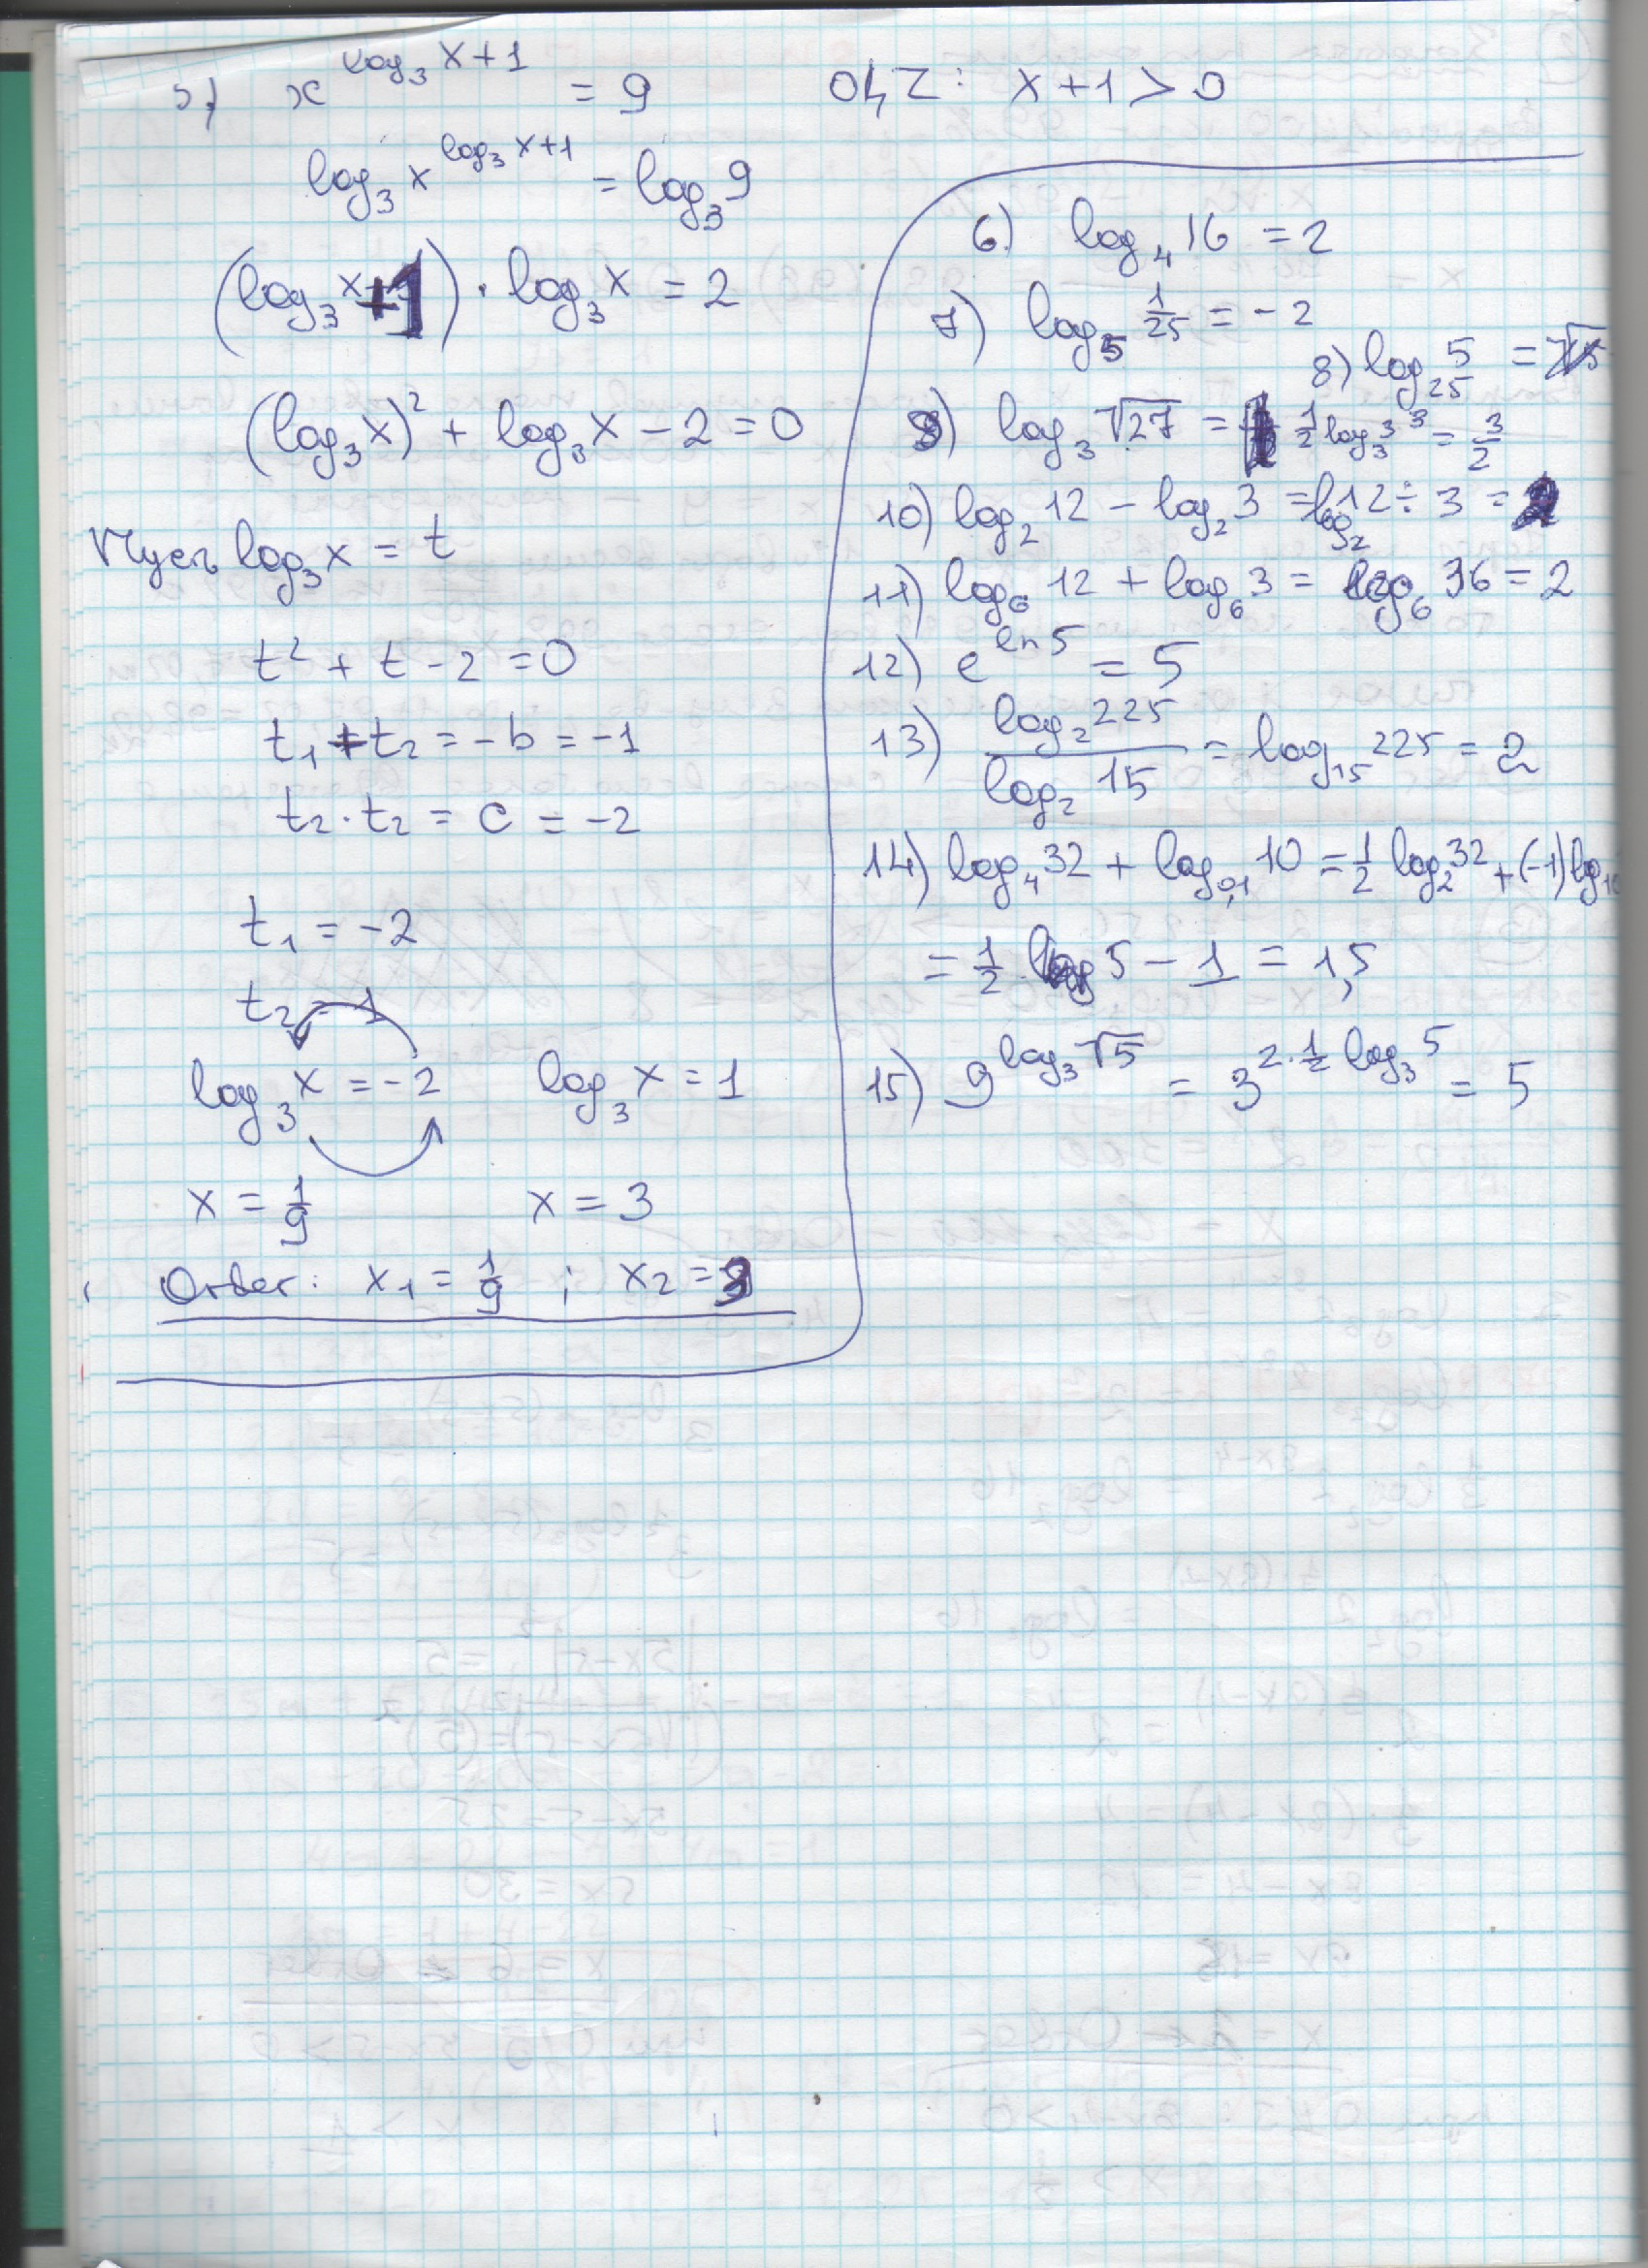 5) x^(log₃ x+1) = 9 ОДЗ: x+1 > 0
log₃ x^(log₃ x+1) = log₃ 9
(log₃ x+1) · log₃ x = 2
(log₃ x)² + log₃ x − 2 = 0
Пусть log₃ x = t
t² + t − 2 = 0
t₁ + t₂ = −b = −1
t₂ · t₂ = c = −2
t₁ = −2
t₂ = 1
log₃ x = −2 log₃ x = 1
x = 1/9 x = 3
Ответ: x₁ = 1/9 ; x₂ = 3
6) log₄ 16 = 2
7) log₅ 1/25 = −2
8) log₂₅ 5 =
9) log₃ √27 = 1/2 log₃ 3³ = 3/2
10) log₂ 12 − log₂ 3 = log₂ 12 ÷ 3 = 2
11) log₆ 12 + log₆ 3 = log₆ 36 = 2
12) e^(ln 5) = 5
13) log₂ 225 / log₂ 15 = log₁₅ 225 = 2
14) log₄ 32 + log₀,₁ 10 = 1/2 log₂ 32 + (−1) lg 10
= 1/2 · 5 − 1 = 1,5
15) 9^(log₃ √5) = 3^(2·1/2 log₃ 5) = 5